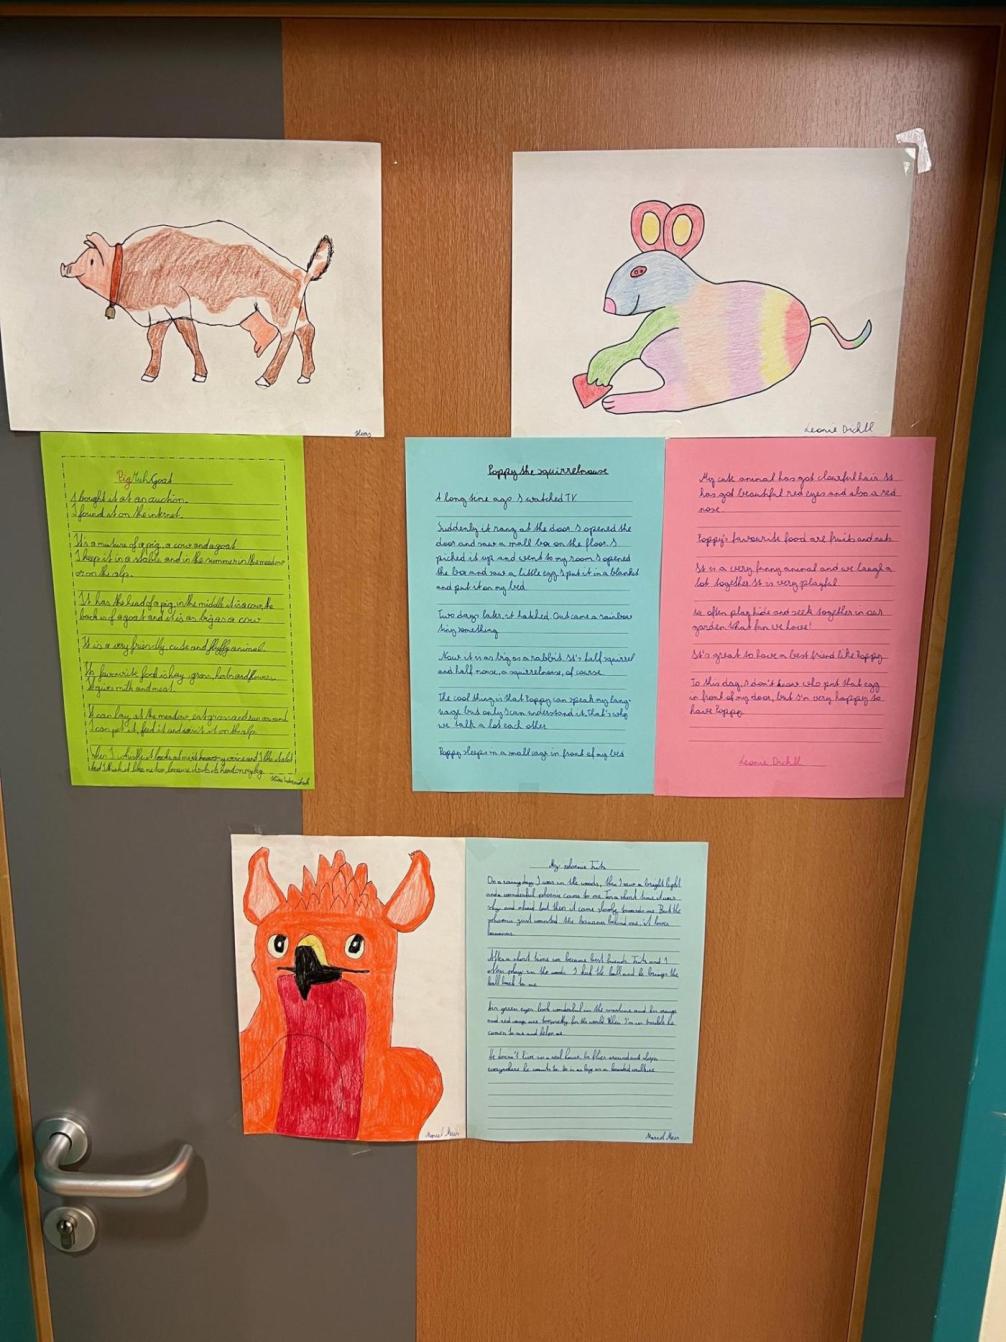 PigKuhGoat
I bought it at an auction.
I found it on the internet.
It's a mixture of a pig, a cow and a goat.
I keep it in a stable and in the summer in the meadow
or on the alp.
It has the head of a pig, in the middle it is a cow, the
back is of a goat and it is as big as a cow
It is a very friendly, cute and fluffy animal.
Its favourite food is hay, grass, herbs and flowers.
It gives milk and meat.
It can lay at the meadow, eat grass and run around
I can pet it, feed it and visit it on the alp.
Leonie Drchll
Poppy the squirrelmouse
A long time ago I watched TV
Suddenly it rang at the door. I opened the
door and saw a small box on the floor. I
picked it up and went to my room. I opened
the box and saw a little egg. I put it in a blanket
and put it on my bed.
Two days later, it hatched. Out came a rainbow
tiny something.
Now it is as big as a rabbit. It's half squirrel
and half mouse, a squirrelmouse, of course
The cool thing is that Poppy can speak my lang-
uage but only I can understand it. That's why
we talk a lot each other
Poppy sleeps in a small cage in front of my bed
My cute animal has got colourful hair. It
has got beautiful red eyes and also a red
nose.
Poppy's favourite food are fruits and nuts.
It is a very funny animal and we laugh a
lot together. It is very playful
We often play hide and seek together in our
garden. What fun we have!
It's great to have a best friend like Poppy.
To this day, I don't know who put that egg
in front of my door, but I'm very happy to
have Poppy.
Leonie Drchll
My phönix Fruts
On a rainy day, I was in the woods, then I saw a bright light
and a wonderful phönix came to me. For a short time it was
shy and afraid but then it came slowly towards me. But the
phönix just wanted the bananas behind me, it loves
bananas.
After a short time we became best friends. Fruts and I
often play in the woods. I kick the ball and he brings the
ball back to me.
His green eyes look wonderful in the sunshine and his orange
and red wings are
comes to me and helps me.
He doesn't live in a real house, he flies around and sleeps
everywhere he wants to. He is as big as a bearded vulture.
Marcel Meir
Marcel Meir